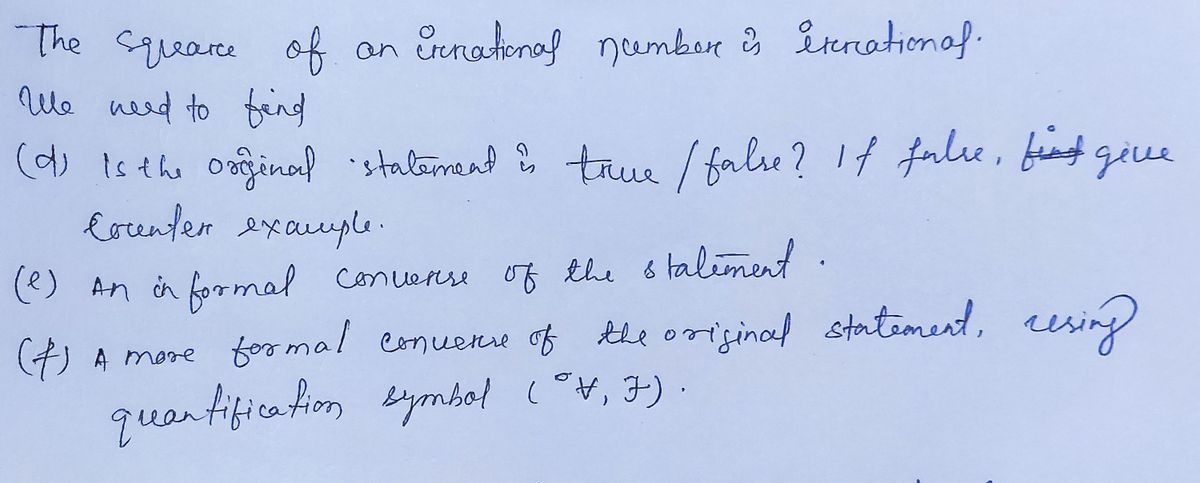 The square of an irrational number is irrational.
We need to find
(d) Is the original statement is true / false? If false, find give
Counter example.
(e) An informal converse of the statement.
(f) A more formal converse of the original statement, using
quantification symbol (∀, ∃).